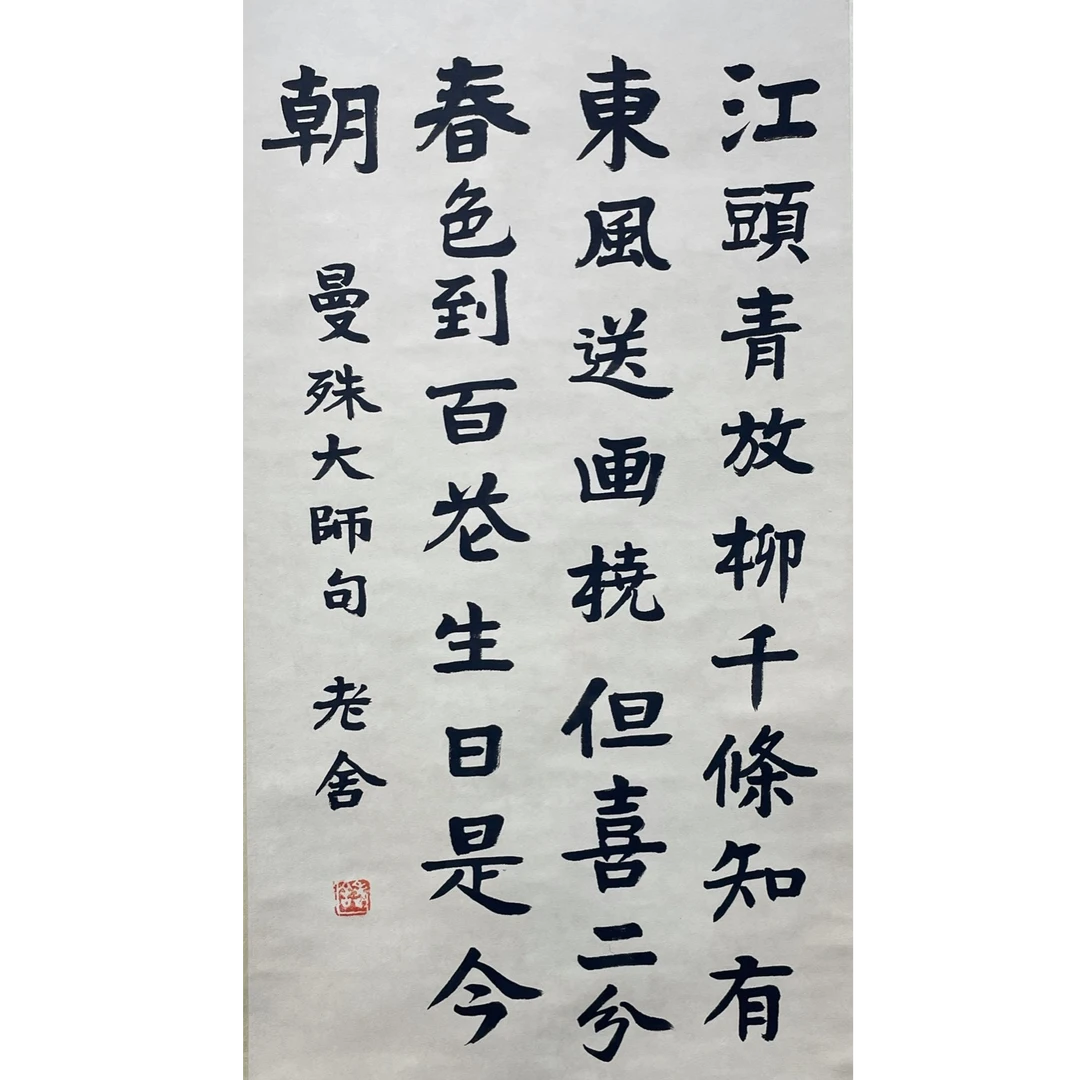 江頭青放柳千條知有
東風送画橈但喜二分
春色到百花生日是今
朝 曼殊大師句 老舍
老舍